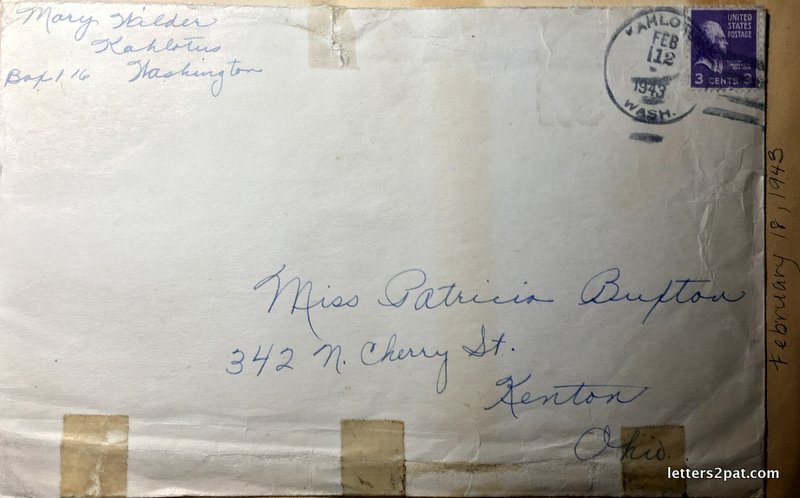 Mary Wilder
Kahlotus
Box 116 Washington
KAHLOTUS
FEB
12
1943
WASH.
UNITED
STATES
POSTAGE
3 CENTS 3
Miss Patricia Buxton
342 N. Cherry St.
Kenton
Ohio.
February 18, 1943
letters2pat.com